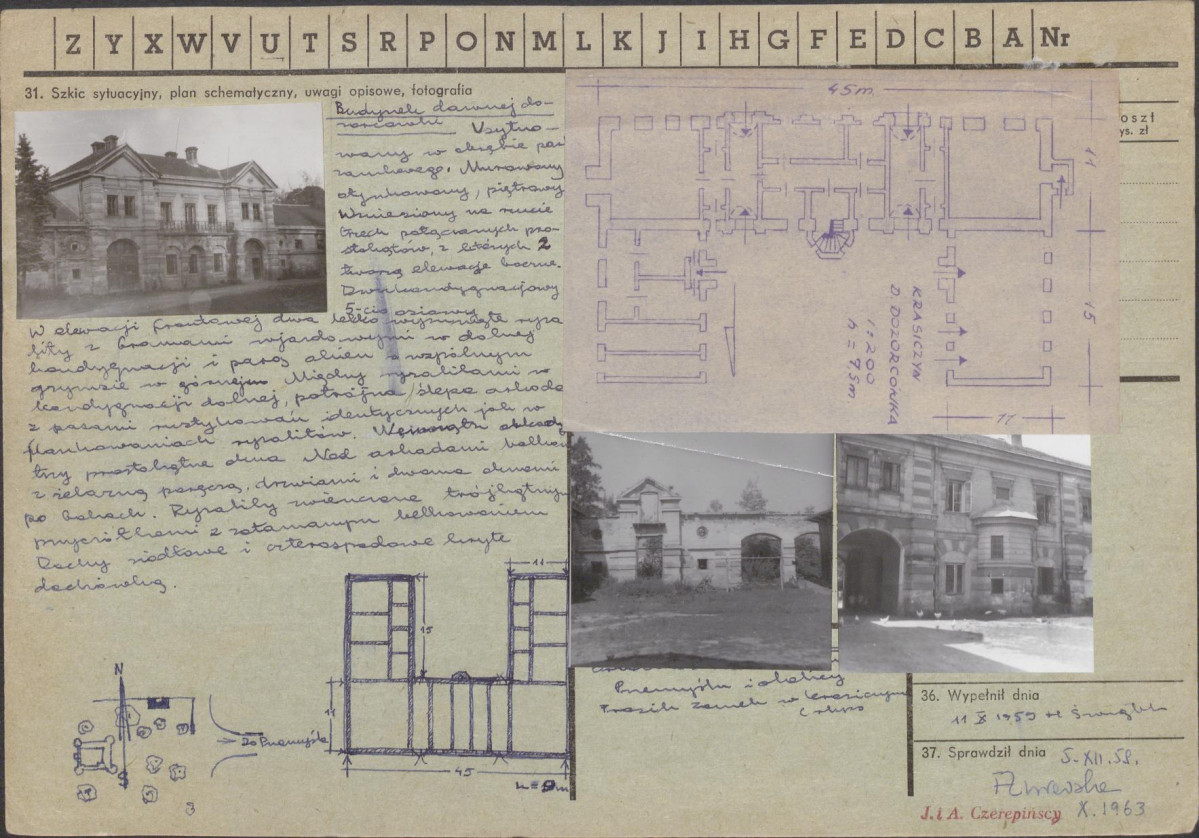 Z Y X W V U T S R P O N M L K J I H G F E D C B A Nr
31. Szkic sytuacyjny, plan schematyczny, uwagi opisowe, fotografia
Budynek dawnej do-
zorcówki Usytuo-
wany w obrębie par
zamkowego. Murowany
otynkowany, piętrowy
Wzniesiony na rzucie
trzech połączonych pro-
stokątów, z których 2
tworzą elewacje boczne.
Dwukondygnacjowy
5-cio osiowy
W elewacji frontowej dwa lekko wysunięte ryza
lity z bramami wjazdowymi w dolnej
kondygnacji i parą okien o wspólnym
gzymsie w górnej. Między ryzalitami w
kondygnacji dolnej, potrójna ślepa arkada
z pasami rustykowań identycznych jak w
flankowaniach ryzalitów. Wewnątrz arkady
trzy prostokątne okna Nad arkadami balkon
z żelazną poręczą, drzwiami i dwoma oknami
po bokach. Ryzality zwieńczone trójkątnym
przyczółkami z załamanym belkowaniem
Dachy siodłowe i czterospadowe kryte
dachówką.
45 m
11
15
11
KRASICZYN
D. DOZORCÓWKA
1:200
h = 9,5m
oszt
ys. zł
11
15
11
45
h = 9 m
N
S
→ Do Przemyśla
3
Przemyślu i okolicy
zamek w Krasiczynie
36. Wypełnił dnia
11 X 1959
37. Sprawdził dnia
5-XII.59.
J. i A. Czerepińscy X. 1963